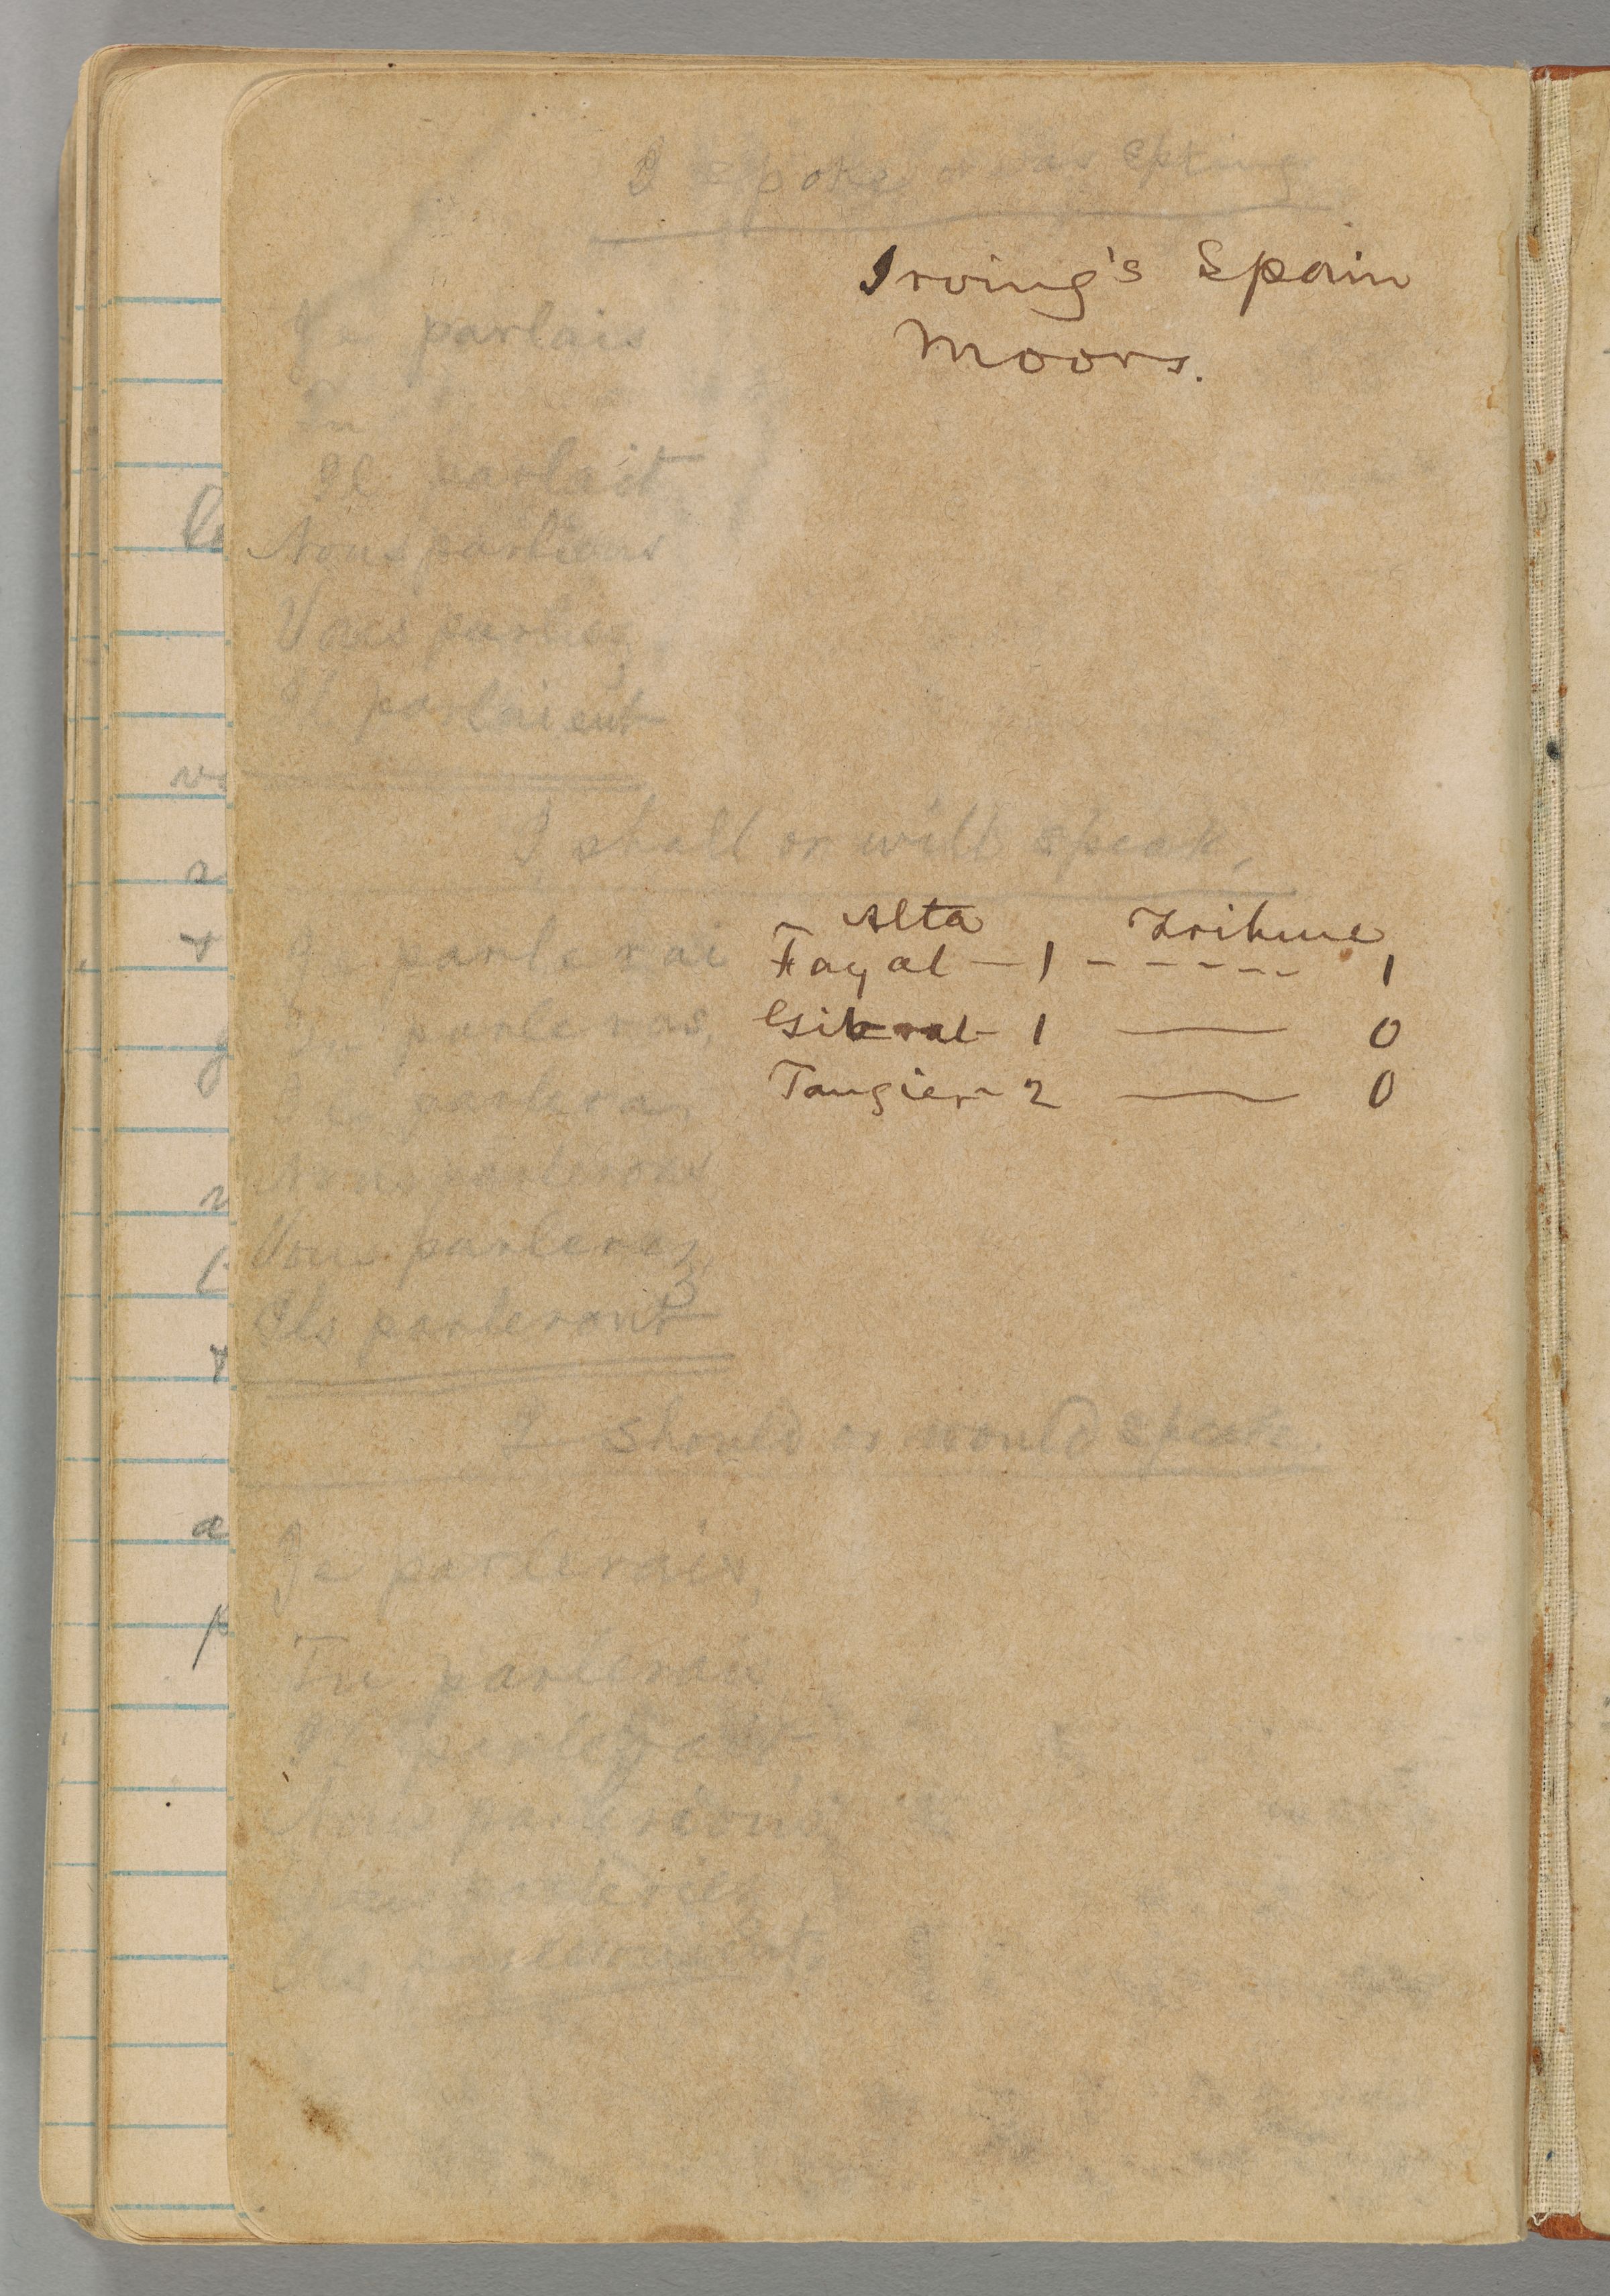 I spoke or was
Irving's Spain
Moors.
Je parlais
Il parlait
Nous parlions
Vous parliez
Il parlaient
I shall or will speak,
Alta Tribune
Je parlerai
Fayal — 1 - - - - - - 1
Tu parleras,
Gibralt 1 — 0
parlera,
Tangier 2 — 0
Nous parlerons
Vous parlerez,
Ils parleront
I should or would speak.
Je parlerais,
Tu parlerais
Il parlerait
Nous parlerions
Vous parleriez
Ils parleraient